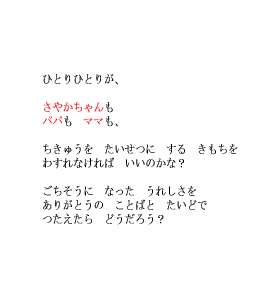 ひとりひとりが、
さやかちゃんも
パパも　ママも、
ちきゅうを　たいせつに　する　きもちを
わすれなければ　いいのかな？
ごちそうに　なった　うれしさを
ありがとうの　ことばと　たいどで
つたえたら　どうだろう？